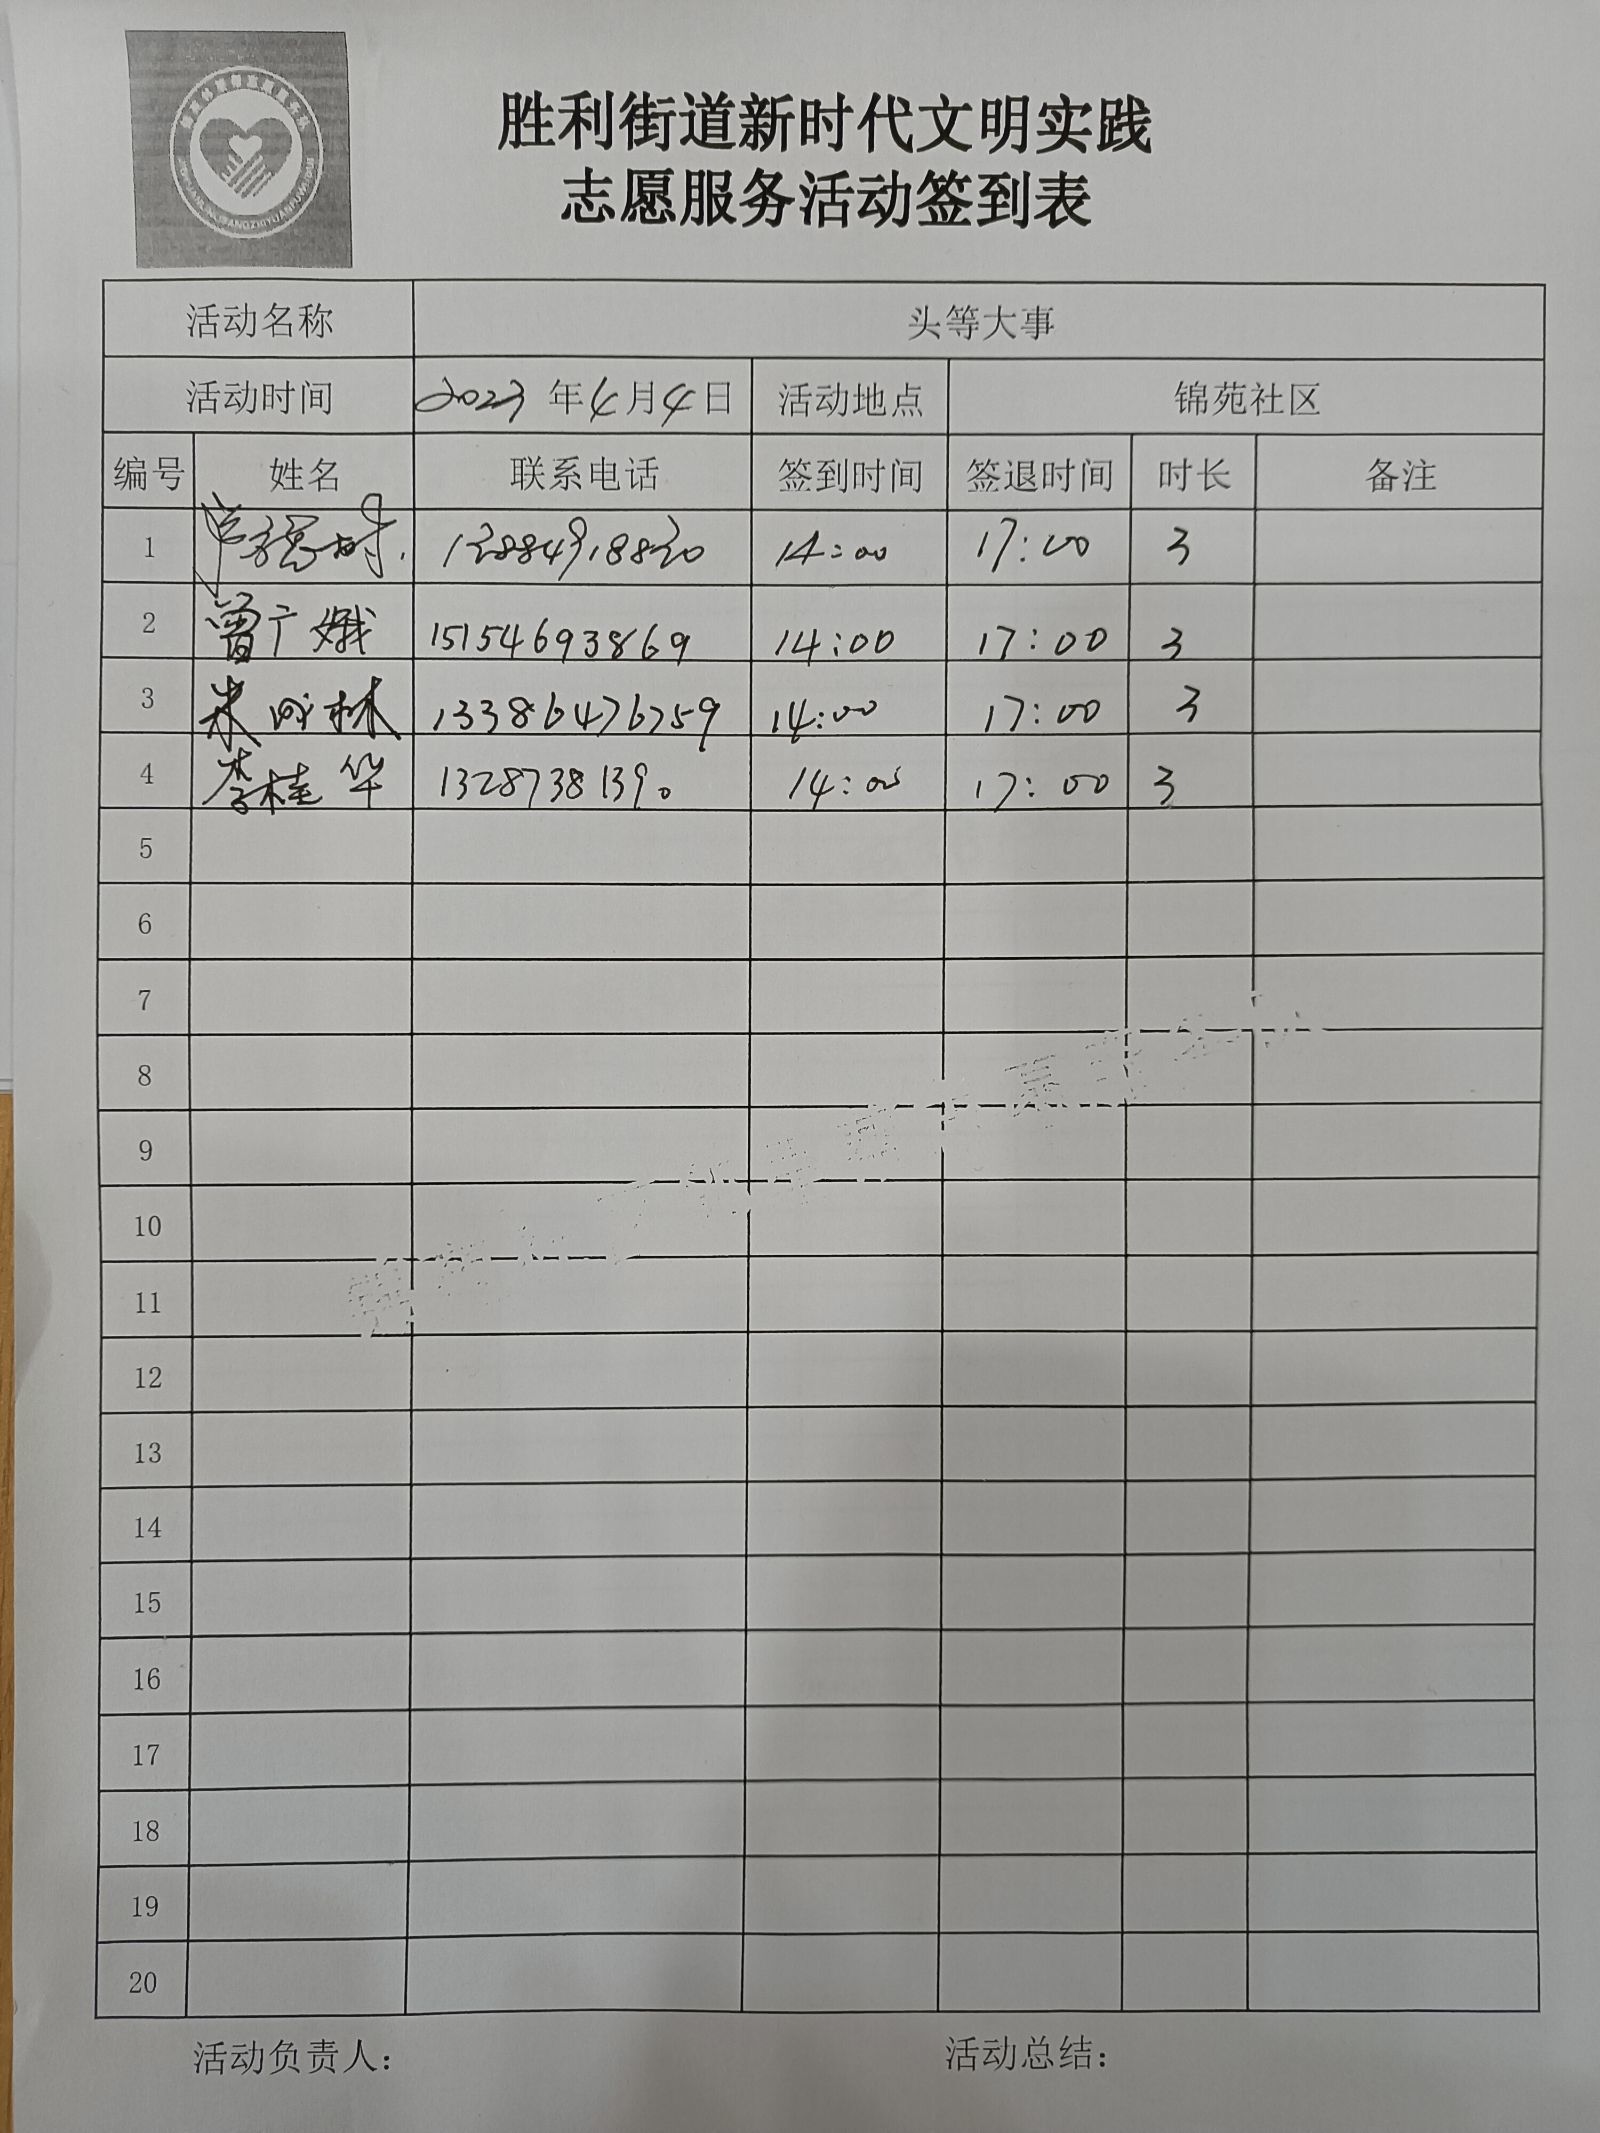 胜利街道新时代文明实践
志愿服务活动签到表
活动名称 头等大事
活动时间 2023 年 4 月 4 日 活动地点 锦苑社区
编号 姓名 联系电话 签到时间 签退时间 时长 备注
1 14:00 17:00 3
2 曾广娥 15154693869 14:00 17:00 3
3 14:00 17:00 3
4 李桂华 13287381390 14:00 17:00 3
5
6
7
8
9
10
11
12
13
14
15
16
17
18
19
20
活动负责人： 活动总结：